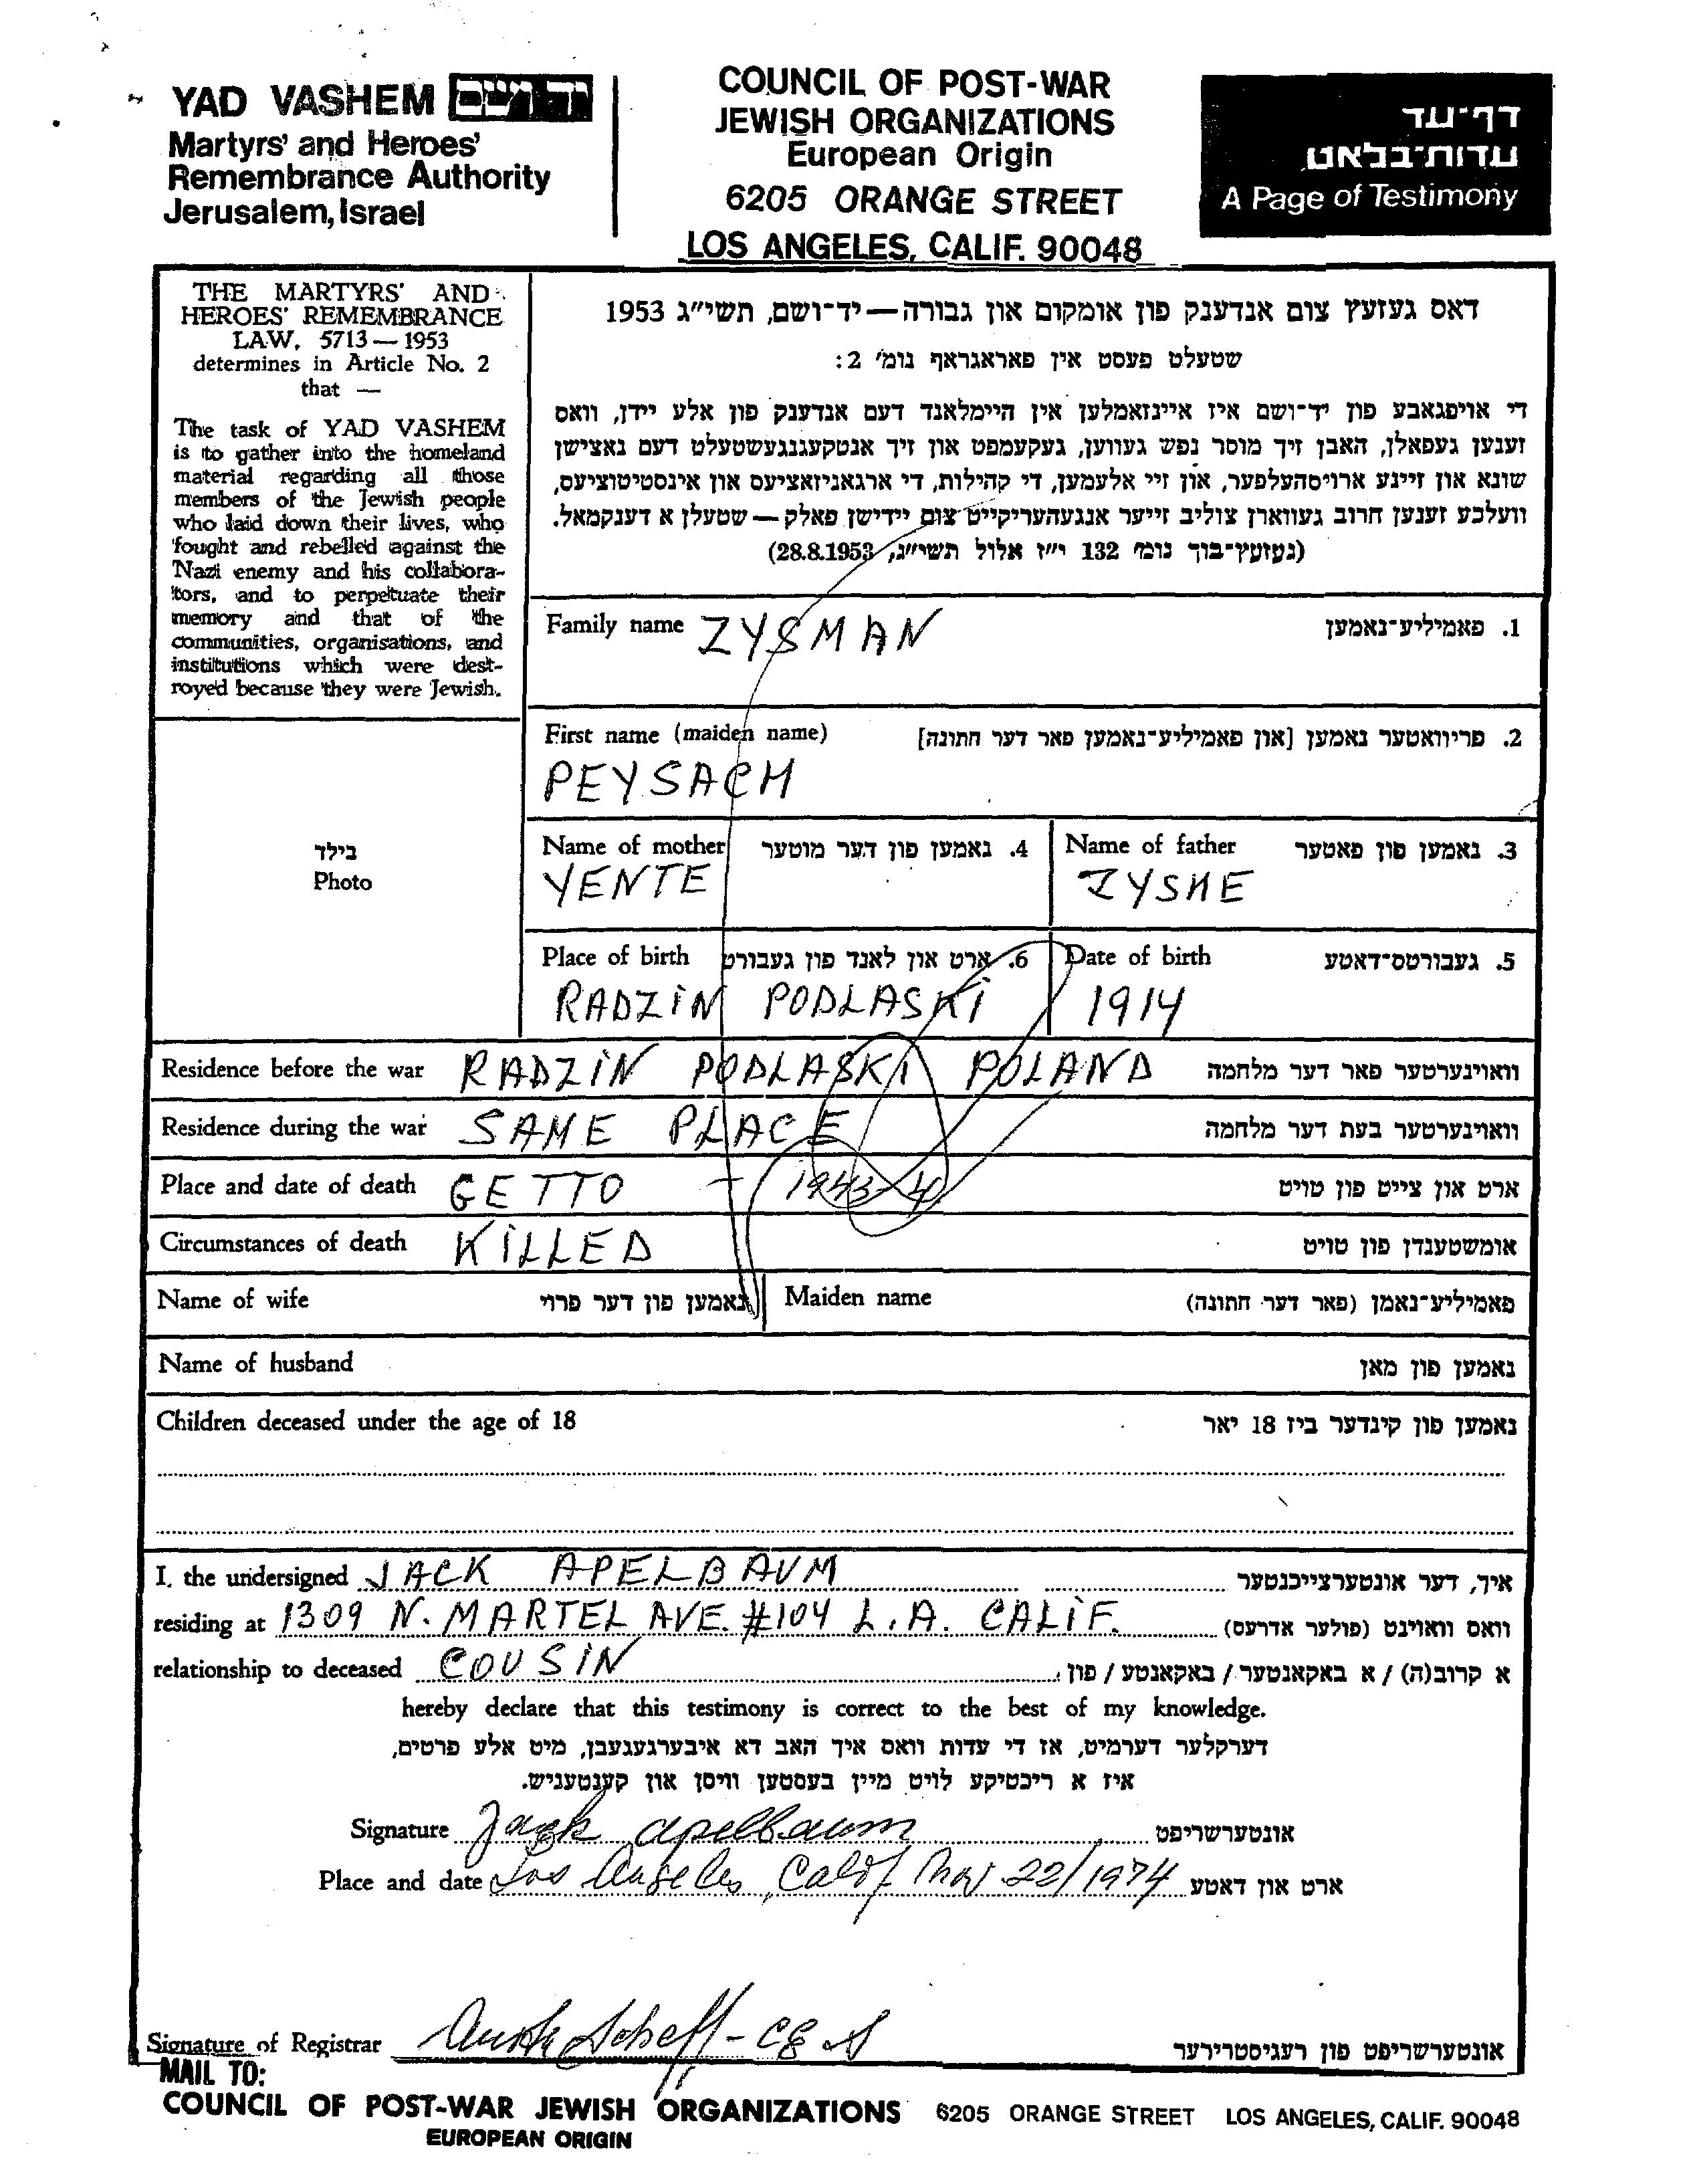 YAD VASHEM יד ושם
Martyrs' and Heroes'
Remembrance Authority
Jerusalem, Israel
COUNCIL OF POST-WAR
JEWISH ORGANIZATIONS
European Origin
6205 ORANGE STREET
LOS ANGELES, CALIF. 90048
דף-עד
עדות-בלאט
A Page of Testimony
THE MARTYRS' AND
HEROES' REMEMBRANCE
LAW, 5713 — 1953
determines in Article No. 2
that —
The task of YAD VASHEM
is to gather into the homeland
material regarding all those
members of the Jewish people
who laid down their lives, who
fought and rebelled against the
Nazi enemy and his collabora-
tors, and to perpetuate their
memory and that of the
communities, organisations, and
institutions which were dest-
royed because they were Jewish.
דאס געזעץ צום אנדענק פון אומקום און גבורה — יד-ושם, תשי״ג 1953
שטעלט פעסט אין פאראגראף נומ׳ 2:
די אויפגאבע פון יד-ושם איז איינזאמלען אין היימלאנד דעם אנדענק פון אלע יידן, וואס
זענען געפאלן, האבן זיך מוסר נפש געווען, געקעמפט און זיך אנטקעגנגעשטעלט דעם נאצישן
שונא און זיינע ארויסהעלפער, און זיי אלעמען, די קהילות, די ארגאניזאציעס און אינסטיטוציעס,
וועלכע זענען חרוב געווארן צוליב זייער אנגעהעריקייט צום יידישן פאלק — שטעלן א דענקמאל.
(געזעץ-בוך נומ׳ 132 י״ז אלול תשי״ג, 28.8.1953)
Family name ZYSMAN 1. פאמיליע-נאמען
First name (maiden name) 2. פריוואטער נאמען [און פאמיליע-נאמען פאר דער חתונה]
PEYSACH
בילד
Photo
Name of mother 4. נאמען פון דער מוטער Name of father 3. נאמען פון פאטער
YENTE ZYSHE
Place of birth 6. ארט און לאנד פון געבורט Date of birth 5. געבורטס-דאטע
RADZIN PODLASKI 1914
Residence before the war RADZIN PODLASKI POLAND וואוינערטער פאר דער מלחמה
Residence during the war SAME PLACE וואוינערטער בעת דער מלחמה
Place and date of death GETTO – 1943-4 ארט און צייט פון טויט
Circumstances of death KILLED אומשטענדן פון טויט
Name of wife נאמען פון דער פרוי Maiden name פאמיליע-נאמן (פאר דער חתונה)
Name of husband נאמען פון מאן
Children deceased under the age of 18 נאמען פון קינדער ביז 18 יאר
I, the undersigned JACK APELBAUM איך, דער אונטערצייכנטער
residing at 1309 N. MARTEL AVE. #104 L.A. CALIF. וואס וואוינט (פולער אדרעס)
relationship to deceased COUSIN א קרוב(ה) / א באקאנטער / באקאנטע / פון
hereby declare that this testimony is correct to the best of my knowledge.
דערקלער דערמיט, אז די עדות וואס איך האב דא איבערגעגעבן, מיט אלע פרטים,
איז א ריכטיקע לויט מיין בעסטען וויסן און קענטעניש.
Signature Jack Apelbaum אונטערשריפט
Place and date Los Angeles, Calif 22/1974 ארט און דאטע
Signature of Registrar אונטערשריפט פון רעגיסטרירער
MAIL TO:
COUNCIL OF POST-WAR JEWISH ORGANIZATIONS 6205 ORANGE STREET LOS ANGELES, CALIF. 90048
EUROPEAN ORIGIN